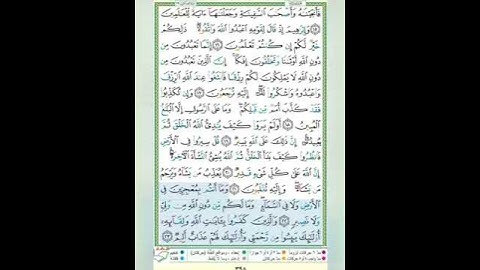 فَأَنجَيْنَٰهُ وَأَصْحَٰبَ ٱلسَّفِينَةِ وَجَعَلْنَٰهَآ ءَايَةً لِّلْعَٰلَمِينَ
١٥ وَإِبْرَٰهِيمَ إِذْ قَالَ لِقَوْمِهِ ٱعْبُدُوا۟ ٱللَّهَ وَٱتَّقُوهُ ذَٰلِكُمْ
خَيْرٌ لَّكُمْ إِن كُنتُمْ تَعْلَمُونَ ١٦ إِنَّمَا تَعْبُدُونَ مِن
دُونِ ٱللَّهِ أَوْثَٰنًا وَتَخْلُقُونَ إِفْكًا إِنَّ ٱلَّذِينَ تَعْبُدُونَ مِن
دُونِ ٱللَّهِ لَا يَمْلِكُونَ لَكُمْ رِزْقًا فَٱبْتَغُوا۟ عِندَ ٱللَّهِ ٱلرِّزْقَ
وَٱعْبُدُوهُ وَٱشْكُرُوا۟ لَهُۥٓ إِلَيْهِ تُرْجَعُونَ ١٧ وَإِن تُكَذِّبُوا۟
فَقَدْ كَذَّبَ أُمَمٌ مِّن قَبْلِكُمْ وَمَا عَلَى ٱلرَّسُولِ إِلَّا ٱلْبَلَٰغُ
ٱلْمُبِينُ ١٨ أَوَلَمْ يَرَوْا۟ كَيْفَ يُبْدِئُ ٱللَّهُ ٱلْخَلْقَ ثُمَّ
يُعِيدُهُۥٓ إِنَّ ذَٰلِكَ عَلَى ٱللَّهِ يَسِيرٌ ١٩ قُلْ سِيرُوا۟ فِى ٱلْأَرْضِ
فَٱنظُرُوا۟ كَيْفَ بَدَأَ ٱلْخَلْقَ ثُمَّ ٱللَّهُ يُنشِئُ ٱلنَّشْأَةَ ٱلْءَاخِرَةَ
إِنَّ ٱللَّهَ عَلَىٰ كُلِّ شَىْءٍ قَدِيرٌ ٢٠ يُعَذِّبُ مَن يَشَآءُ وَيَرْحَمُ
مَن يَشَآءُ وَإِلَيْهِ تُقْلَبُونَ ٢١ وَمَآ أَنتُم بِمُعْجِزِينَ فِى
ٱلْأَرْضِ وَلَا فِى ٱلسَّمَآءِ وَمَا لَكُم مِّن دُونِ ٱللَّهِ مِن وَلِىٍّ
وَلَا نَصِيرٍ ٢٢ وَٱلَّذِينَ كَفَرُوا۟ بِـَٔايَٰتِ ٱللَّهِ وَلِقَآئِهِۦٓ
أُو۟لَٰٓئِكَ يَئِسُوا۟ مِن رَّحْمَتِى وَأُو۟لَٰٓئِكَ لَهُمْ عَذَابٌ أَلِيمٌ ٢٣
٣٩٨